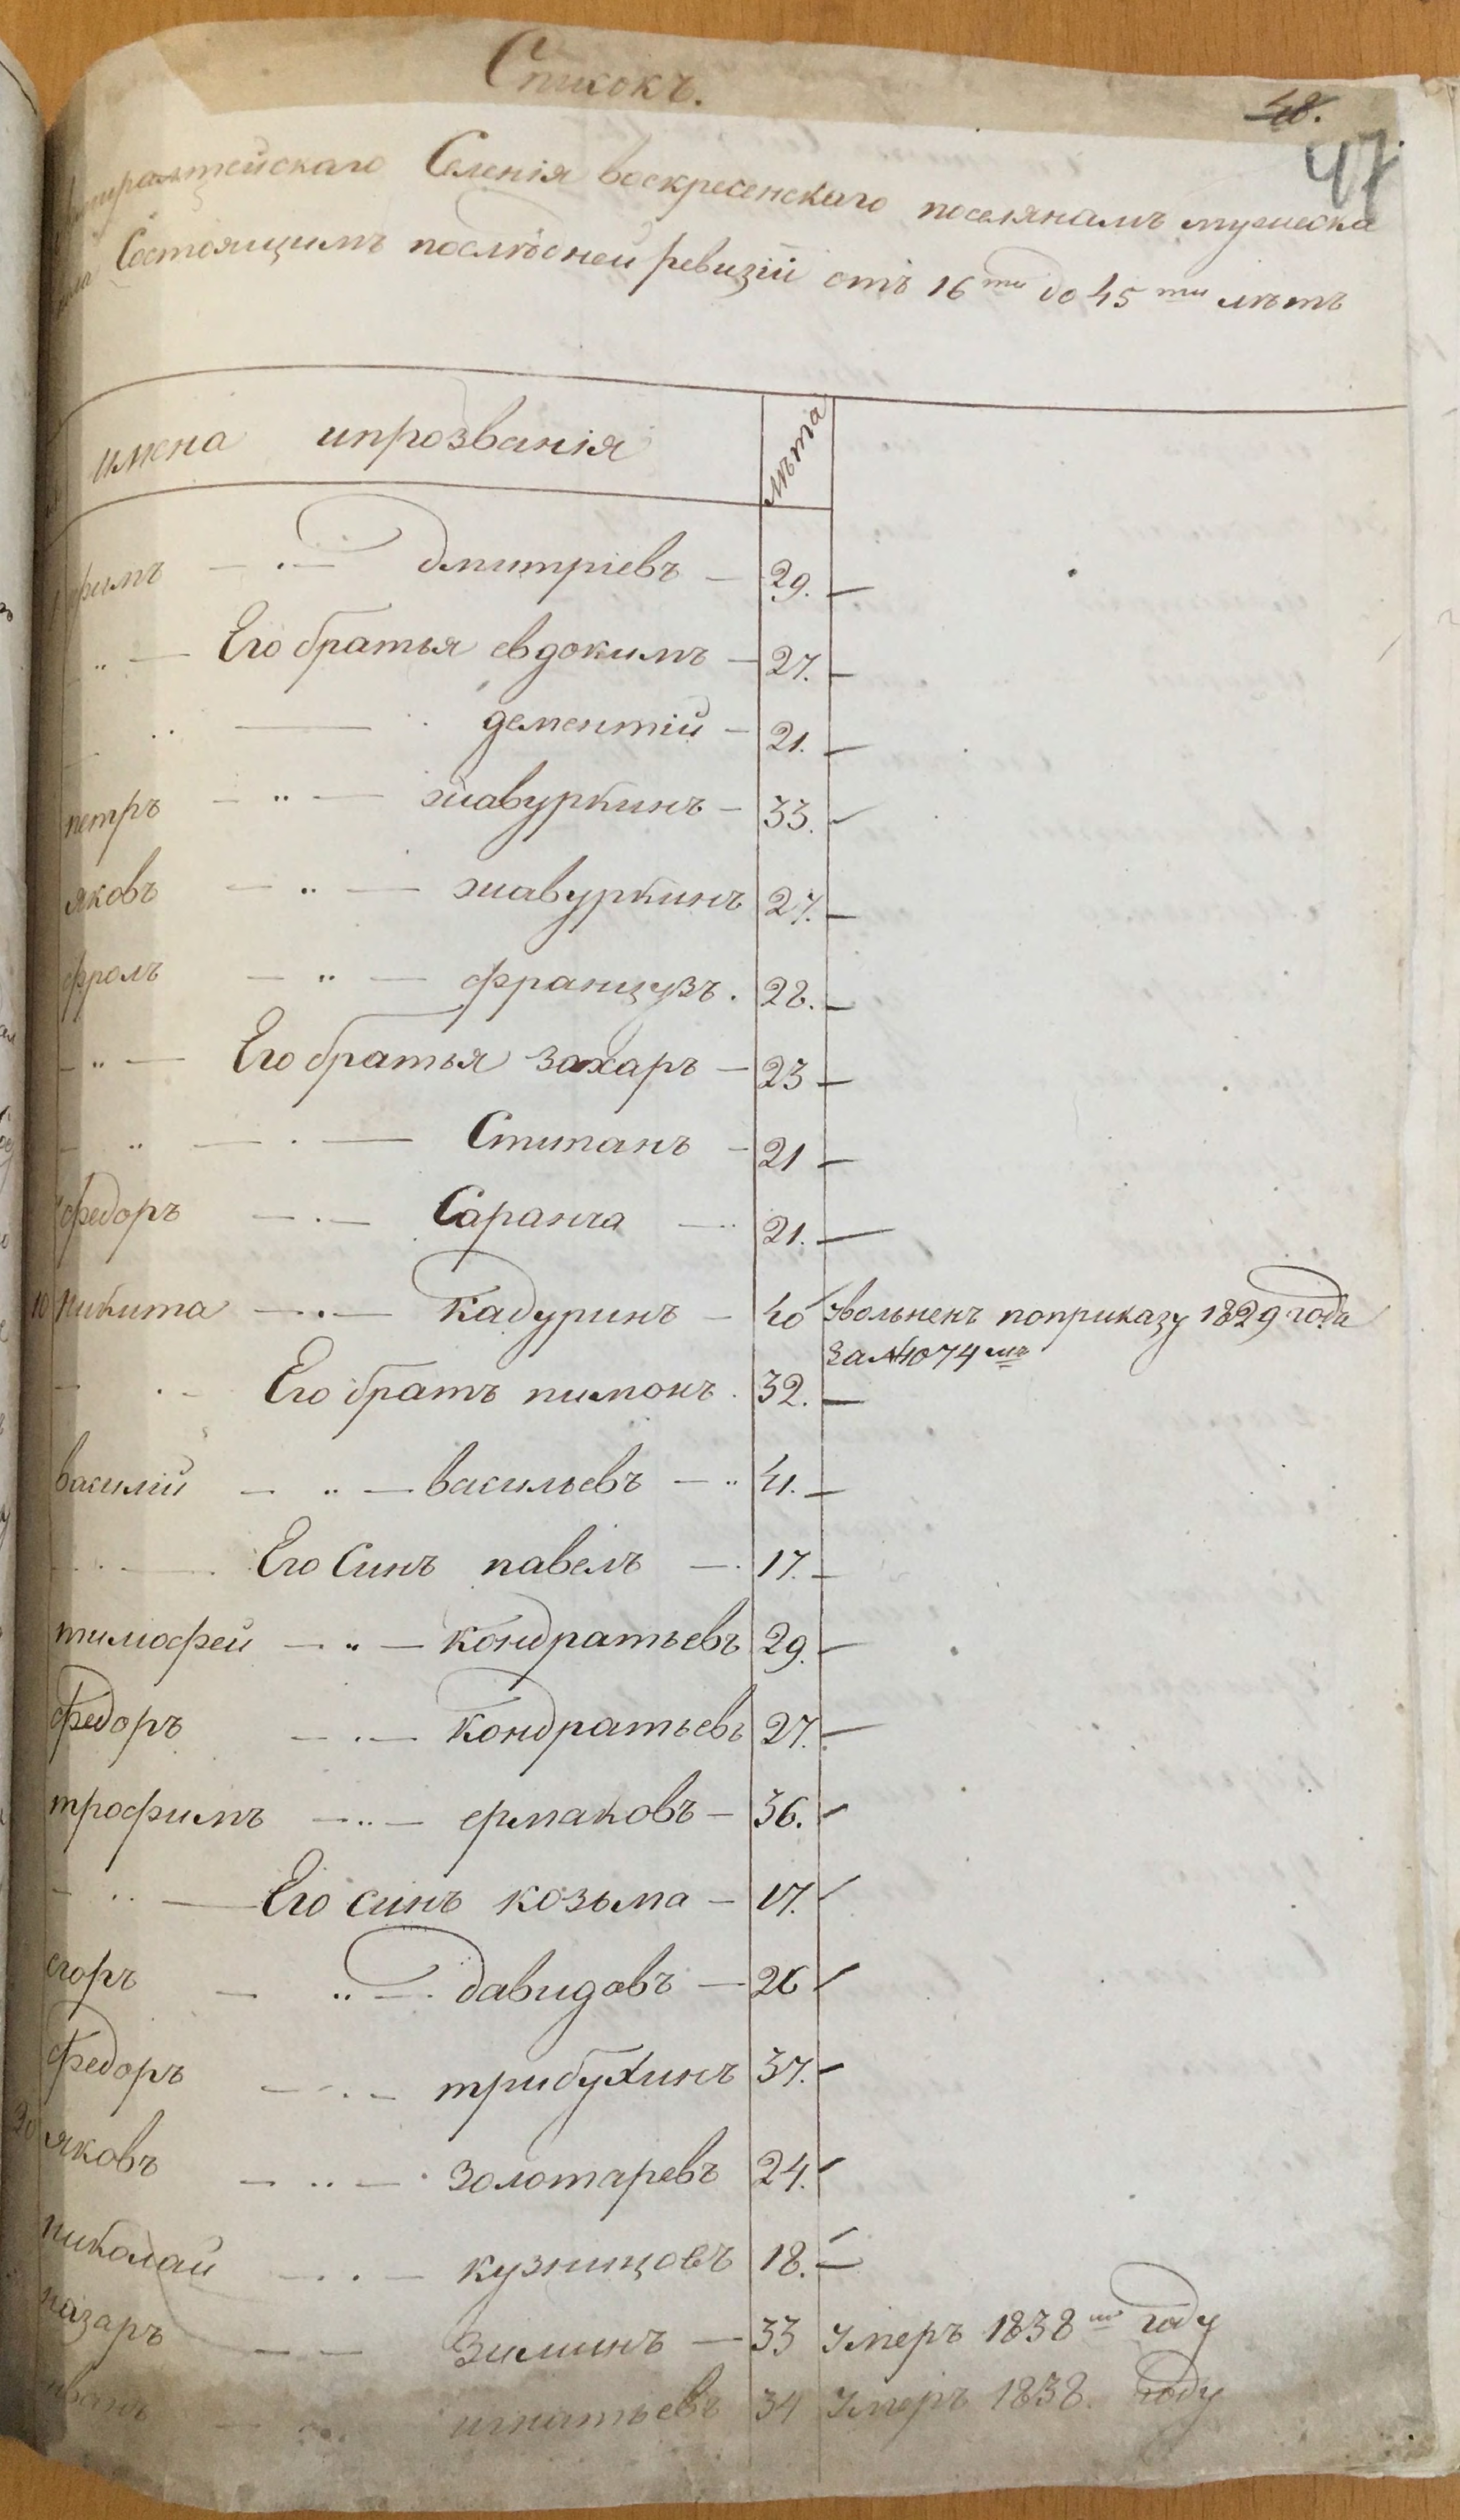 Списокъ.
48.
47
Адмиралтейскаго Селенія воскресенскаго поселянамъ мужеска
пола Состоящимъ послѣдней ревизіи отъ 16ти до 45ти лѣтъ
имена ипрозванія лѣта
дмитріевъ — 29. —
" — Его братья евдокимъ — 27. —
дементій — 21. —
петръ — " — жавуркинъ — 33. —
яковъ — " — жавуркинъ 27. —
фролъ — " — французъ. 28. —
— " — Его братья захаръ — 23 —
— " — . — Степанъ — 21 —
федоръ — . — Саранча — 21. —
10 никита — . — кадуринъ — 40 Уволненъ поприказу 1829 года
За №1074мъ
— . — Его братъ пимонъ. 32. —
василій — " — васильевъ — " 41. —
Его Синъ павелъ — 17. —
тимофей — " — кондратьевъ 29. —
федоръ — . — кондратьевъ 27. —
трофимъ — " — ермаковъ — 36. —
— " — Его синъ козьма — 17. —
егоръ — " — давидовъ — 26 —
федоръ — . — трибухинъ 37. —
20 яковъ — " — золотаревъ 24. —
николай — . — кузницовъ 18. —
назаръ — — Зиминъ — 33 Умеръ 1838го году
иванъ — игнатьевъ 34 Умеръ 1838. году